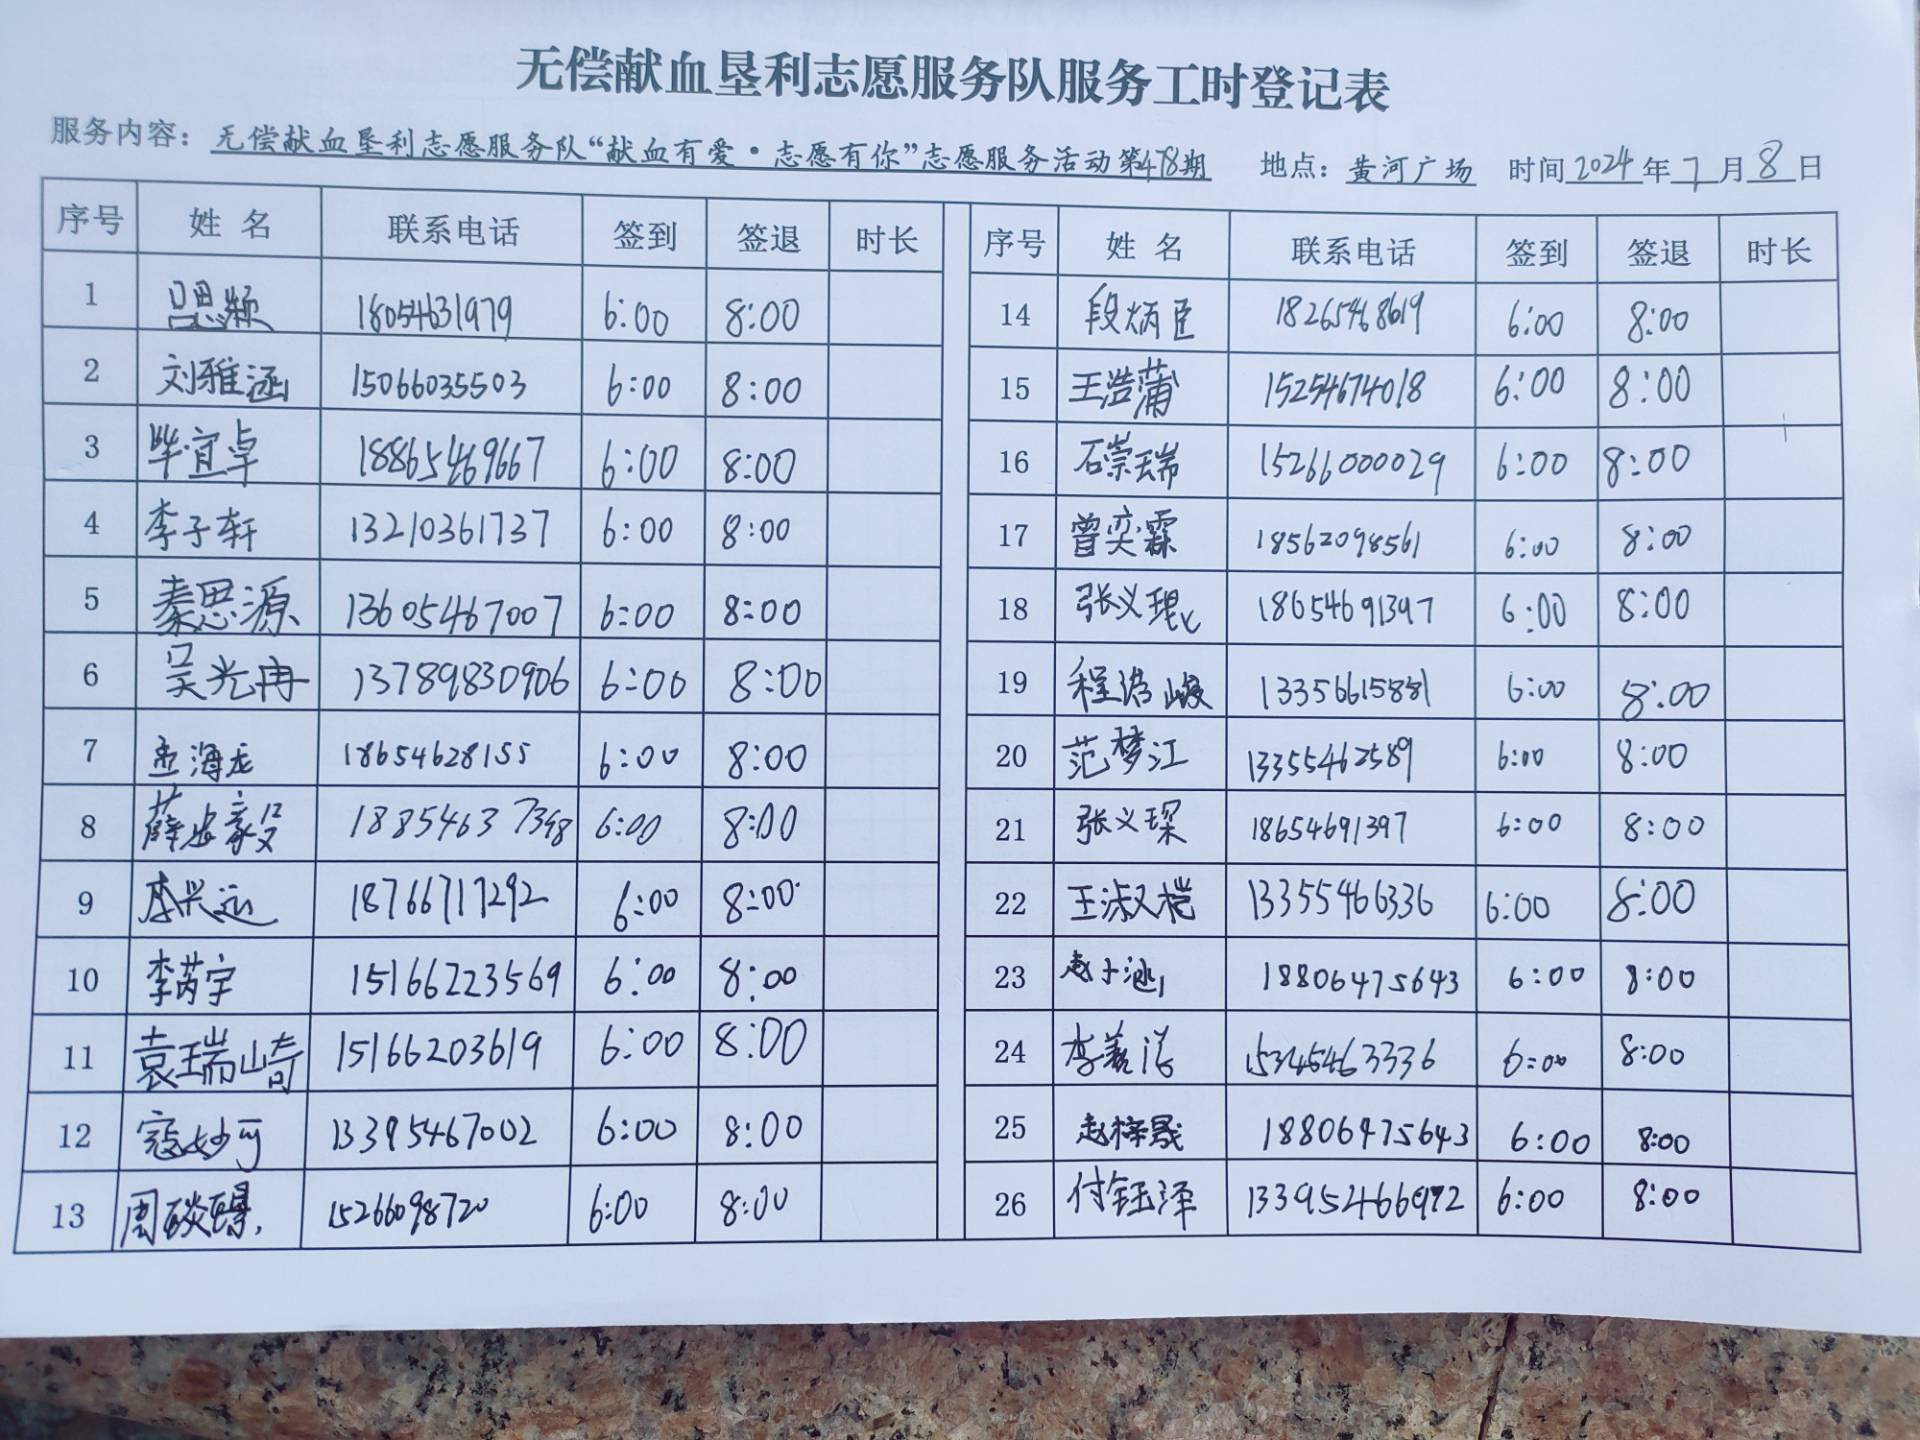 无偿献血垦利志愿服务队服务工时登记表
服务内容：无偿献血垦利志愿服务队“献血有爱·志愿有你”志愿服务活动第478期 地点：黄河广场 时间2024年7月8日
序号 姓名 联系电话 签到 签退 时长 序号 姓名 联系电话 签到 签退 时长
1 吕思颖 18054631979 6:00 8:00 14 段炳臣 18265468619 6:00 8:00
2 刘雅涵 15066035503 6:00 8:00 15 王浩蒲 15254674018 6:00 8:00
3 毕宜卓 18865469667 6:00 8:00 16 石崇瑞 15266000029 6:00 8:00
4 李子轩 13210361737 6:00 8:00 17 曾奕霖 18562098561 6:00 8:00
5 秦思源 13605467007 6:00 8:00 18 张义琨 18654691397 6:00 8:00
6 吴光冉 13789830906 6:00 8:00 19 程 峻 13356615881 6:00 8:00
7 孟海龙 18654628155 6:00 8:00 20 范梦江 13355462589 6:00 8:00
8 薛 毅 18854637398 6:00 8:00 21 张义琛 18654691397 6:00 8:00
9 李兴远 18766717292 6:00 8:00 22 王淑桤 13355466336 6:00 8:00
10 李芮宇 15166223569 6:00 8:00 23 赵子涵 18806475643 6:00 8:00
11 袁瑞崎 15166203619 6:00 8:00 24 李 15345463336 6:00 8:00
12 寇妙可 13395467002 6:00 8:00 25 赵梓晟 18806475643 6:00 8:00
13 周 15266098720 6:00 8:00 26 付钰泽 13395466972 6:00 8:00